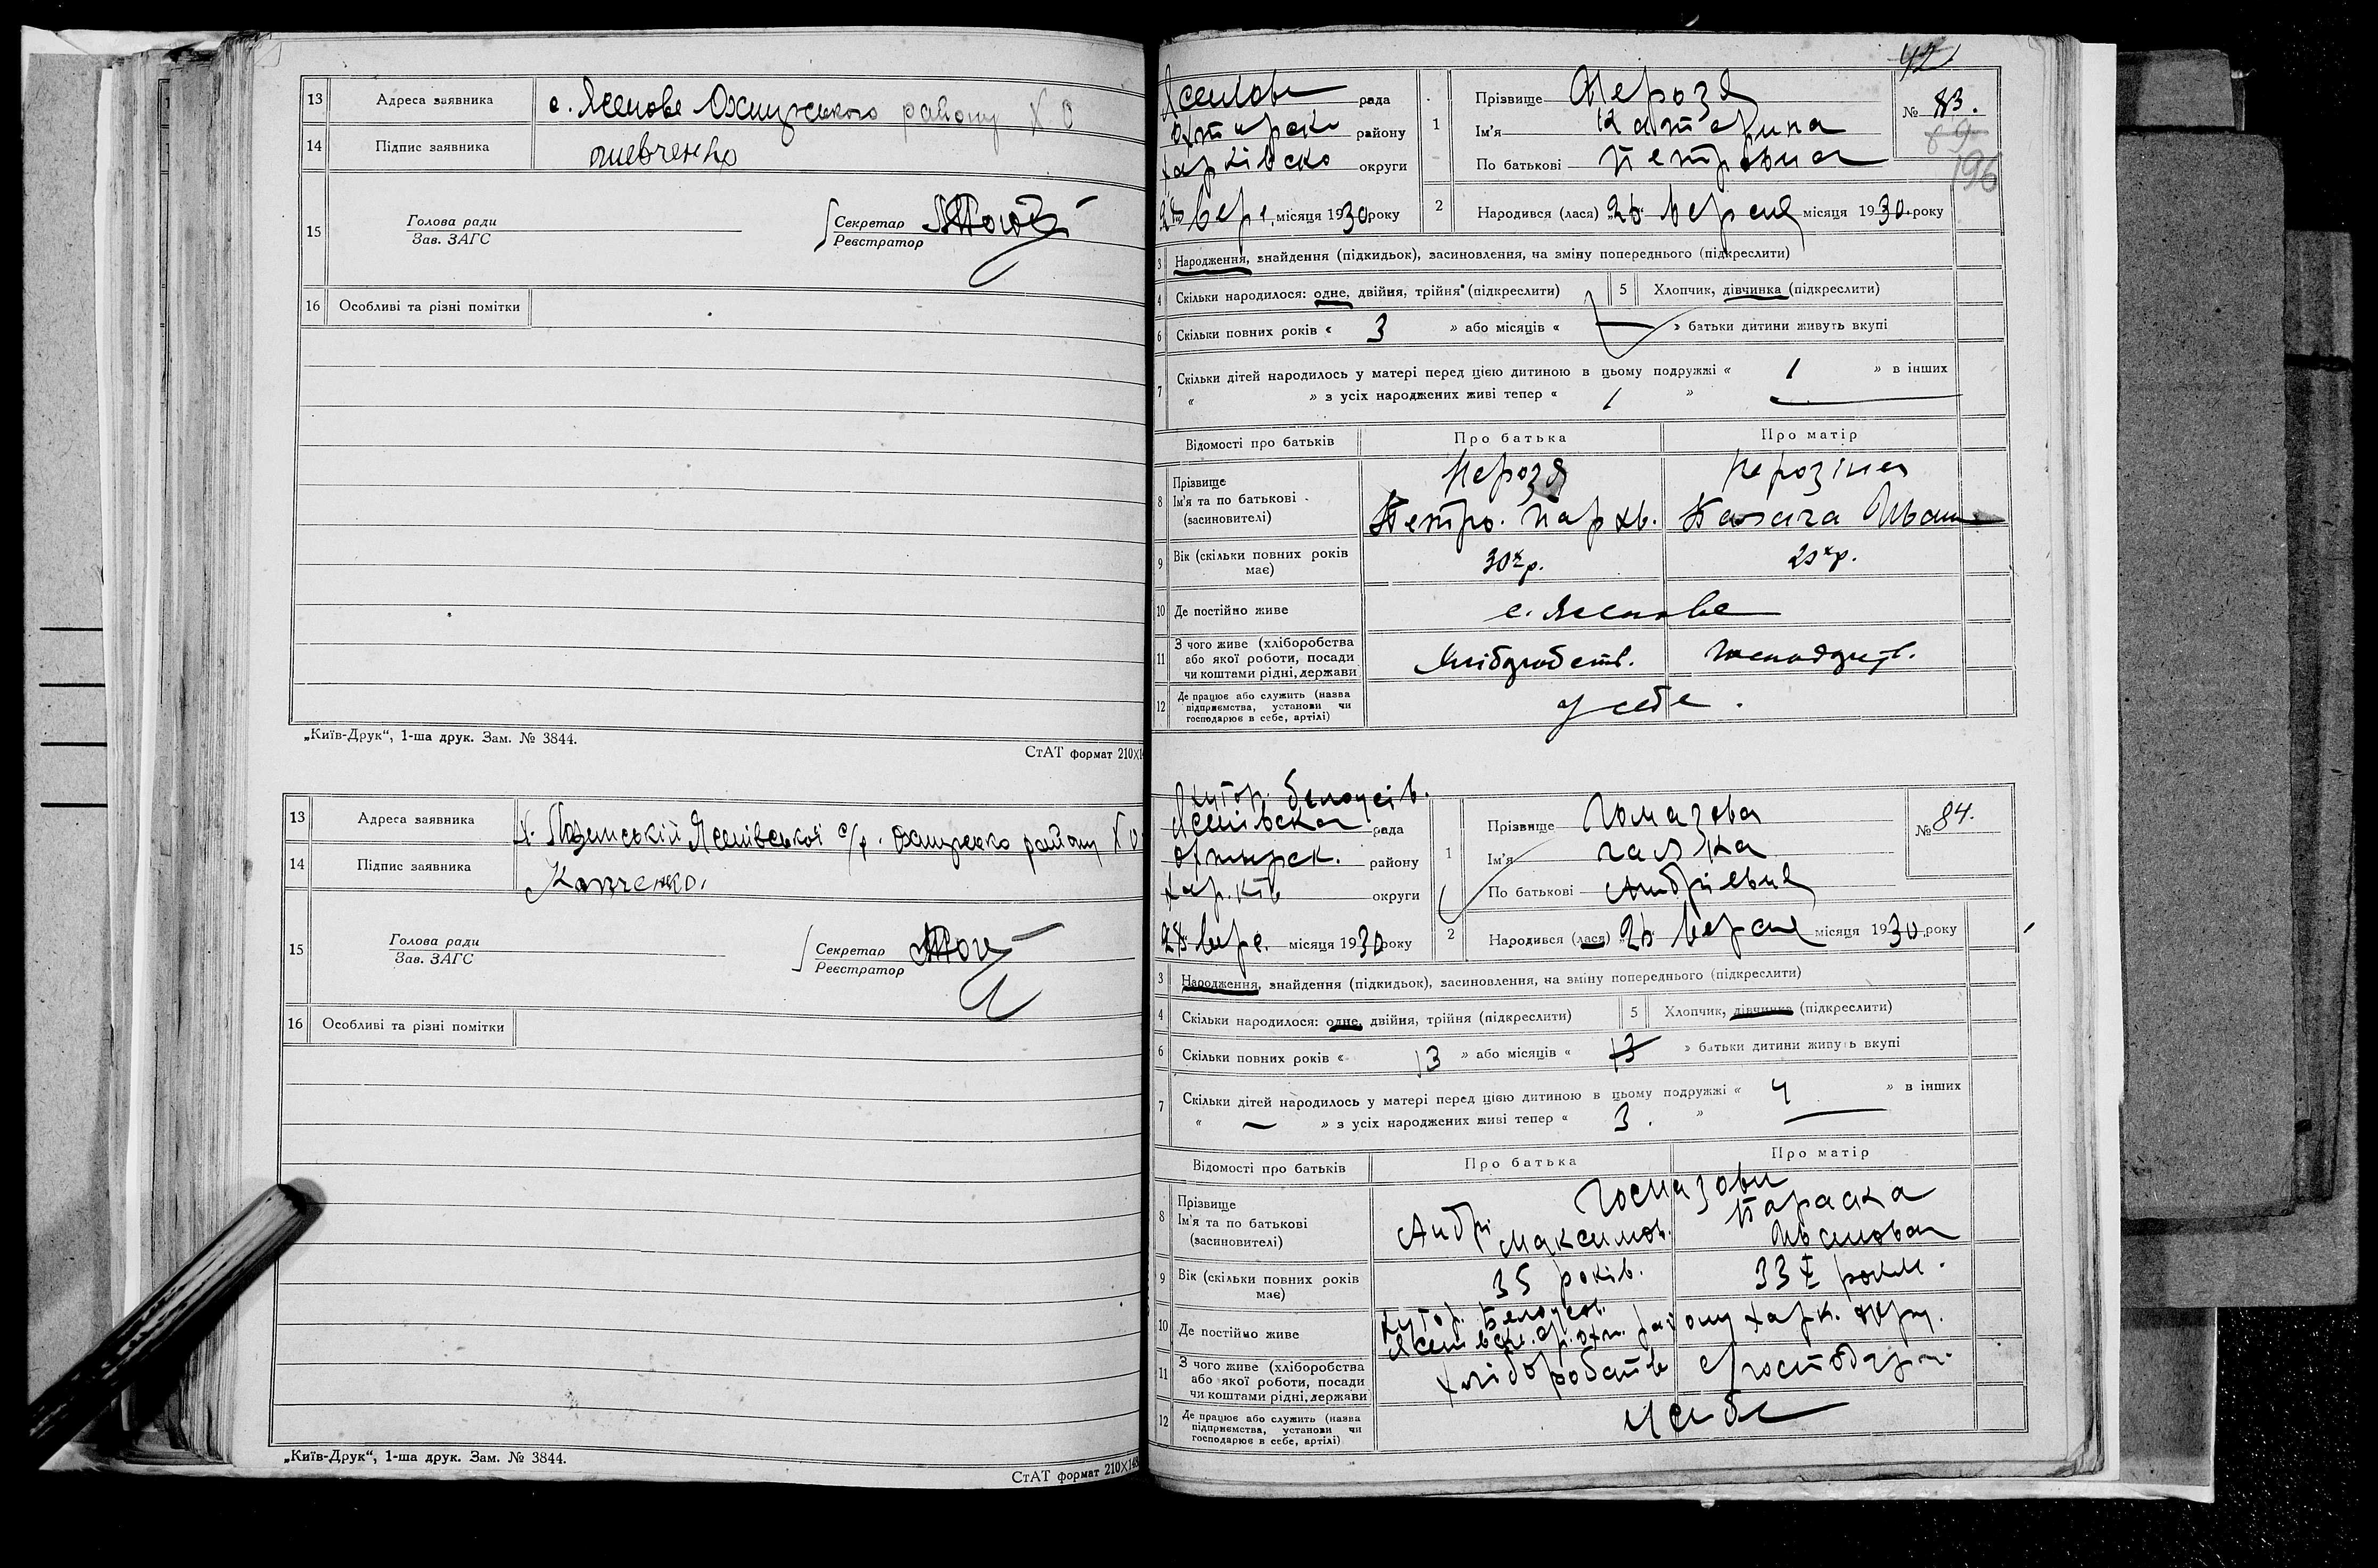 13 Адреса заявника с. Ясенове Охтирського району Х О
14 Підпис заявника Шевченко
15 Голова ради
Зав. ЗАГС
Секретар
Реєстратор
16 Особливі та різні помітки
„Київ-Друк“, 1-ша друк. Зам. № 3844.
СтАТ формат 210X1
13 Адреса заявника Ясенівської с/р. Охтирсько району Х О
14 Підпис заявника
15 Голова ради
Зав. ЗАГС
Секретар
Реєстратор
16 Особливі та різні помітки
„Київ-Друк“, 1-ша друк. Зам. № 3844.
СтАТ формат 210X148
42
Ясенове рада
Охтирсько району
Харківсько округи
28 вере. місяця 1930 року
1 Прізвище
Ім'я Катерина
По батькові Петрівна
№ 83.
69
196
2 Народився (лася) „26“ версня місяця 1930. року
3 Народження, знайдення (підкидьок), засиновлення, на зміну попереднього (підкреслити)
4 Скільки народилося: одне, двійня, трійня (підкреслити) 5 Хлопчик, дівчинка (підкреслити)
6 Скільки повних років « 3 » або місяців « — » батьки дитини живуть вкупі
7 Скільки дітей народилось у матері перед цією дитиною в цьому подружжі « 1 » в інших
« » з усіх народжених живі тепер « 1 »
Відомості про батьків Про батька Про матір
8 Прізвище
Ім'я та по батькові
(засиновителі)
Петро. Иван
9 Вік (скільки повних років має) 30х р.
10 Де постійно живе с. Ясенове
11 З чого живе (хліборобства
або якої роботи, посади
чи коштами рідні, держави
Хліборобств. господарств.
12 Де працює або служить (назва
підприємства, установи чи
господарює в себе, артілі)
у себе.
хутор. Белоусів.
Ясенівска рада
Охтирск. району
Харків округи
28 вере. місяця 1930 року
1 Прізвище Гомазова
Ім'я Галька
По батькові Андрієвна
№ 84.
2 Народився (лася) „26“ версня місяця 1930. року
3 Народження, знайдення (підкидьок), засиновлення, на зміну попереднього (підкреслити)
4 Скільки народилося: одне, двійня, трійня (підкреслити) 5 Хлопчик, дівчинка (підкреслити)
6 Скільки повних років « 13 » або місяців « 13 » батьки дитини живуть вкупі
7 Скільки дітей народилось у матері перед цією дитиною в цьому подружжі « 4 » в інших
« — » з усіх народжених живі тепер « 3. »
Відомості про батьків Про батька Про матір
8 Прізвище
Ім'я та по батькові
(засиновителі)
Гомазови
Андрі Параска
Максимов. Ивановна
9 Вік (скільки повних років має) 35 років. 33х роки.
10 Де постійно живе хутор. Белоусов.
Ясенівськ. с/р. Охт. району Харк. окру.
11 З чого живе (хліборобства
або якої роботи, посади
чи коштами рідні, держави
хліборобств господар.
12 Де працює або служить (назва
підприємства, установи чи
господарює в себе, артілі)
у себе